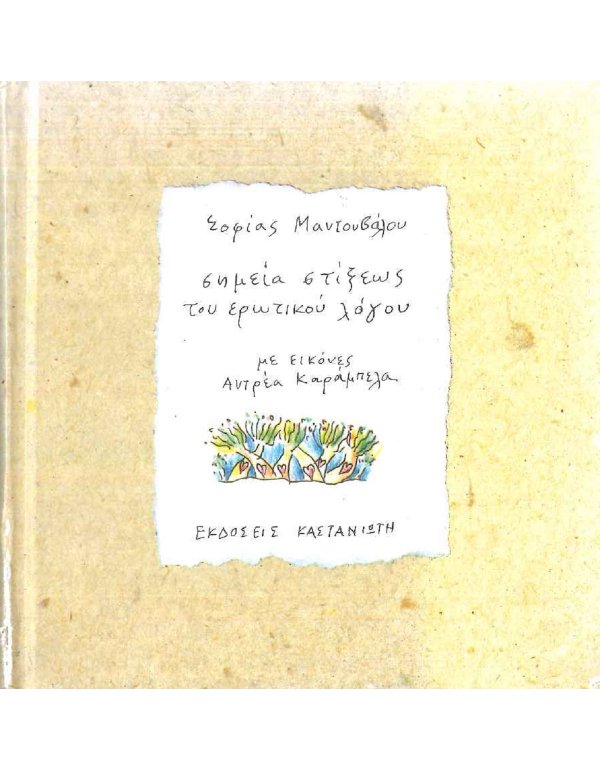 Σοφίας Μαντουβάλου
σημεία στίξεως
του ερωτικού λόγου
με εικόνες
Αντρέα Καράμπελα
ΕΚΔΟΣΕΙΣ ΚΑΣΤΑΝΙΩΤΗ